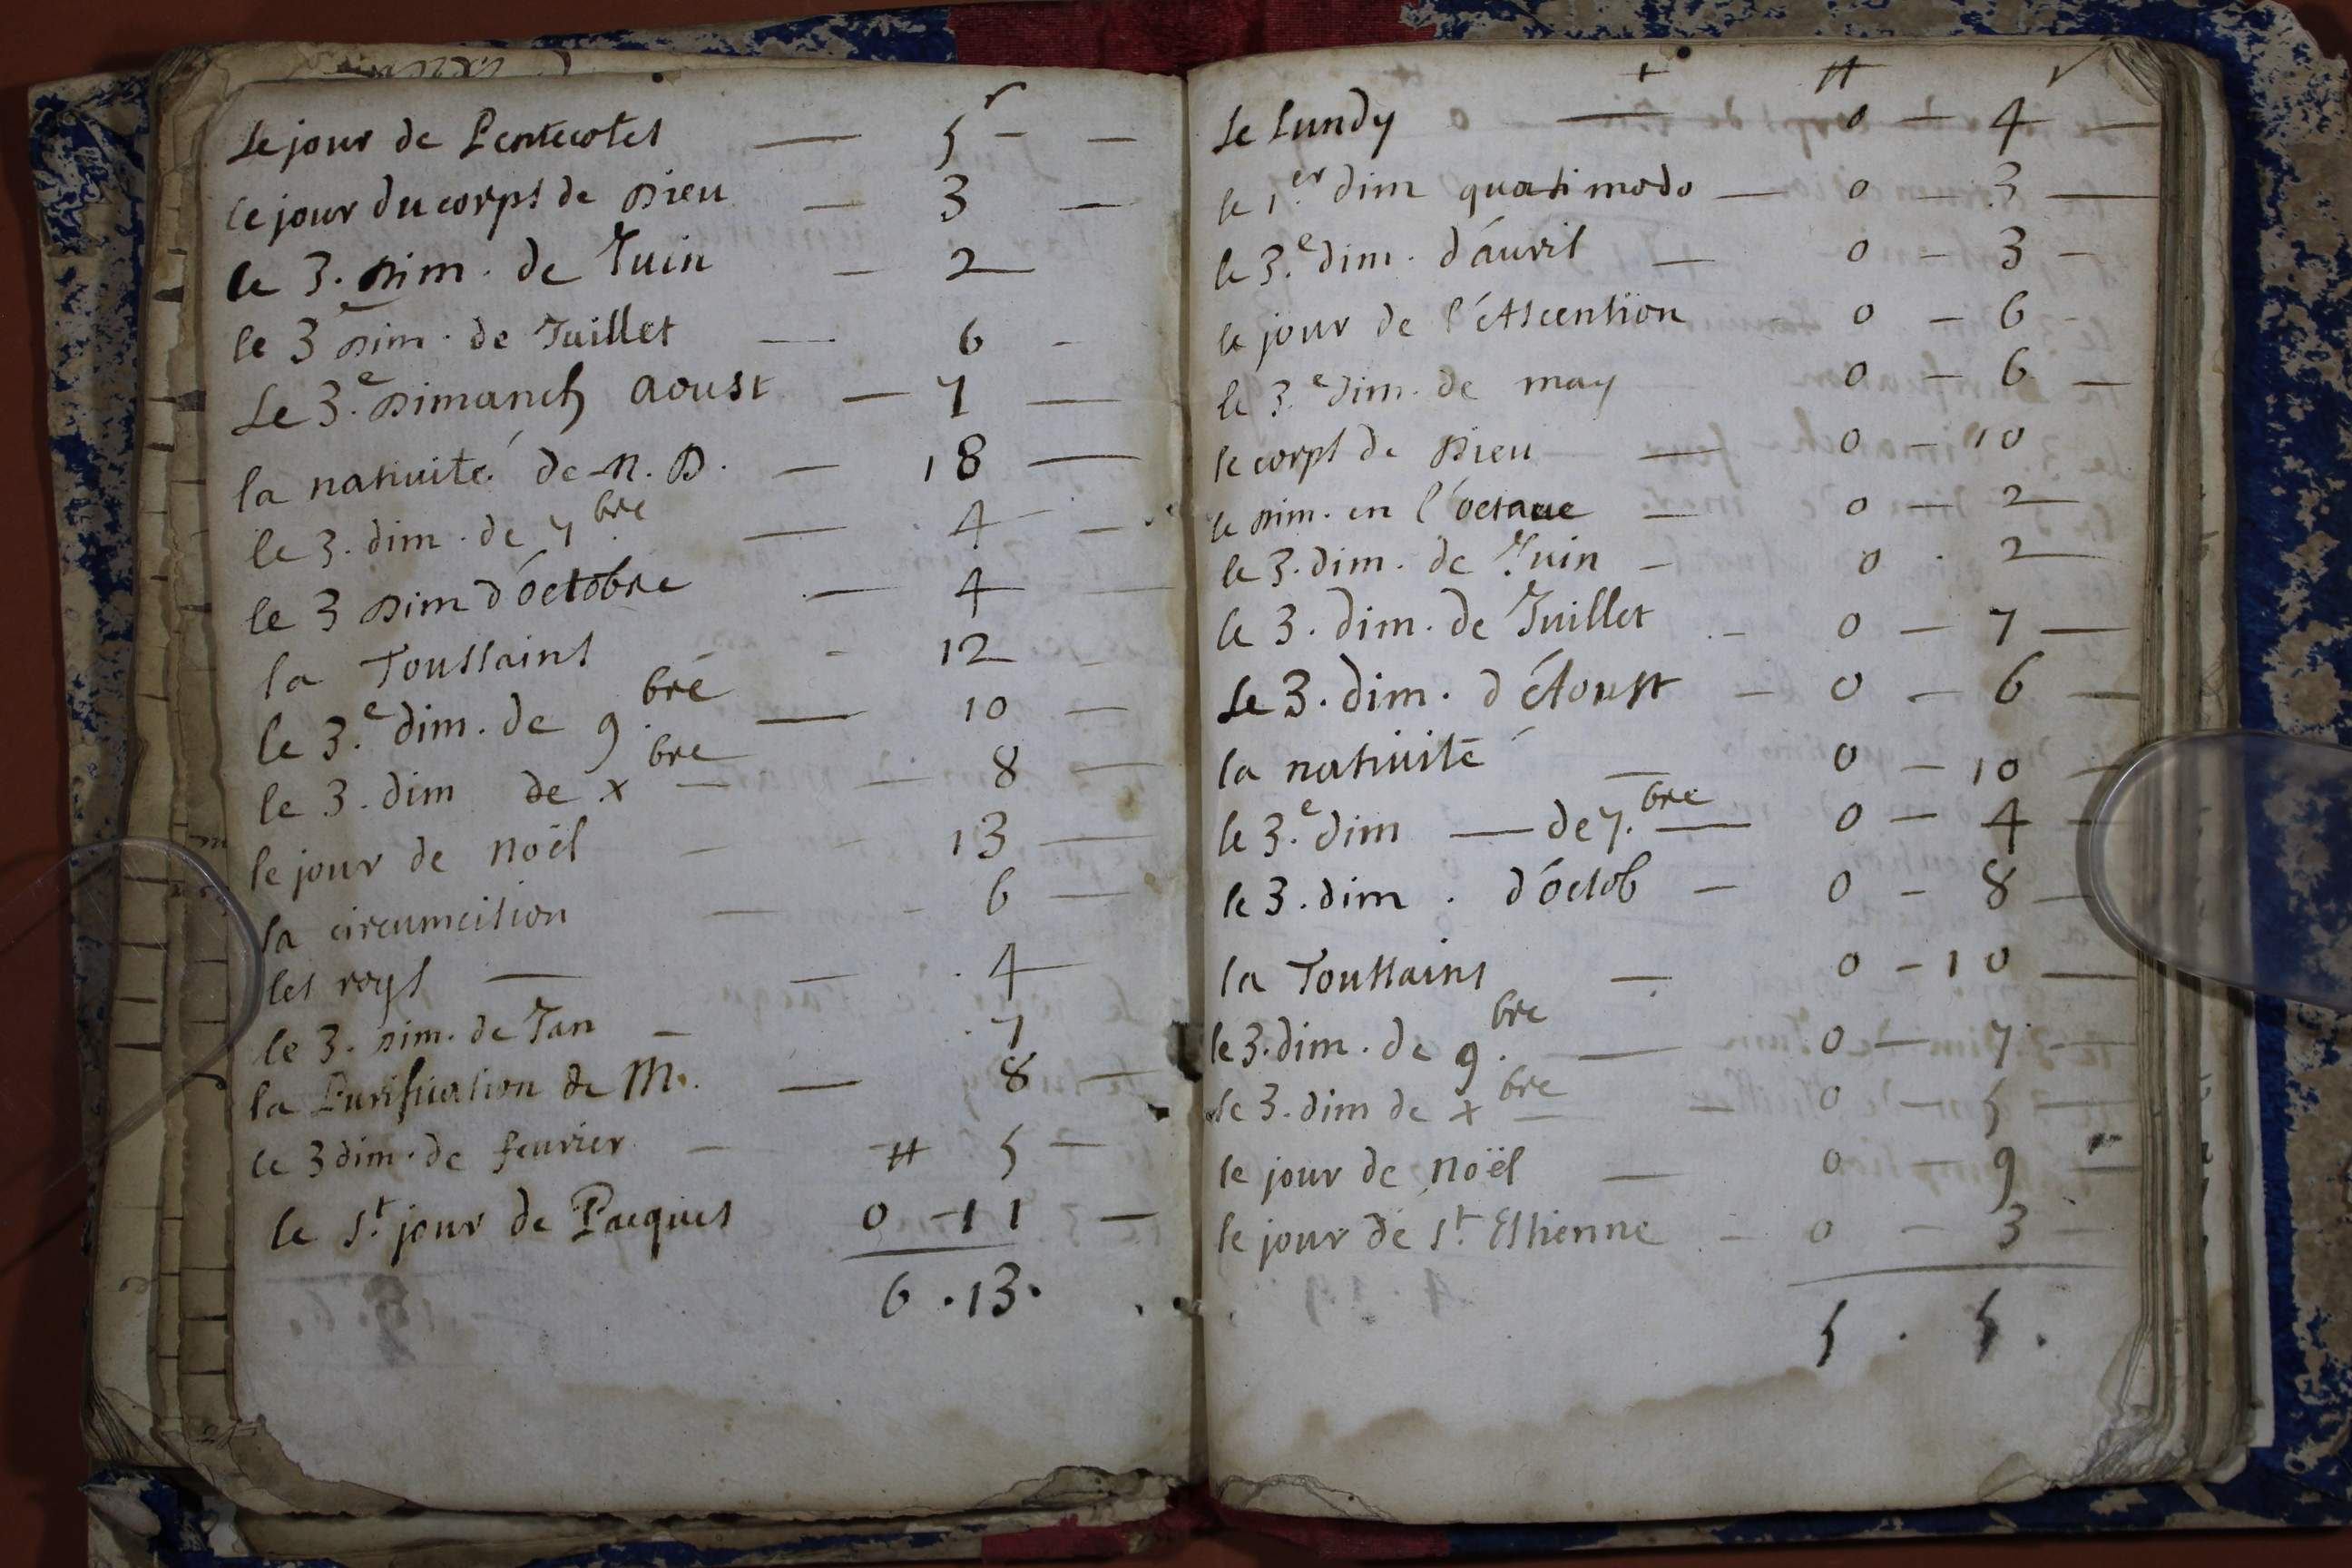 s
Le jour de Pentecotes — 5 — —
le jour du corps de Dieu — 3 —
le 3. Dim. de Juin — 2 —
le 3e Dim. de Juillet — 6 —
Le 3.e Dimanch aoust — 7 —
la nativité de N. D. — 18 —
le 3. dim. de 7.bre — 4 — —
le 3 Dim d'octobre — 4 —
la Toussains - 12 -
le 3.e dim. de 9.bre — 10 —
le 3. dim de xbre — — 8 —
le jour de noël — 13 —
la circumcision — - 6 —
les roys — — . 4 —
le 3. Dim. de Jan — . 7
la Purification de M. — 8 —
le 3 dim. de feurier — ₶ 5 —
le St. jour de Pacques 0 - 11 —
6 . 13 .
+ ₶ s
Le Lundy — 0 — 4 —
le 1.er dim quasimodo — 0 — 3 —
le 3.e dim. d'auril — 0 — 3 —
le jour de l'Ascention - 0 — 6 -
le 3.e dim. de may 0 — 6 —
le corps de Dieu — 0 — 10
le Dim. en l'octaue — 0 — 2 —
le 3. dim. de Juin — 0 . 2 —
le 3. dim. de Juillet — 0 — 7 —
Le 3. dim. d'Aoust — 0 — 6 —
la natiuité — 0 — 10 —
le 3.e dim — de 7.bre — 0 — 4 —
le 3. dim . d'octob — 0 — 8 —
la Toussains — 0 — 10 —
le 3. dim. de 9.bre — 0 — 7 —
Le 3. dim de xbre — — 0 — 5 —
le jour de noël — 0 — 9 —
le jour de St. Estienne — 0 — 3 —
5 . 5 .